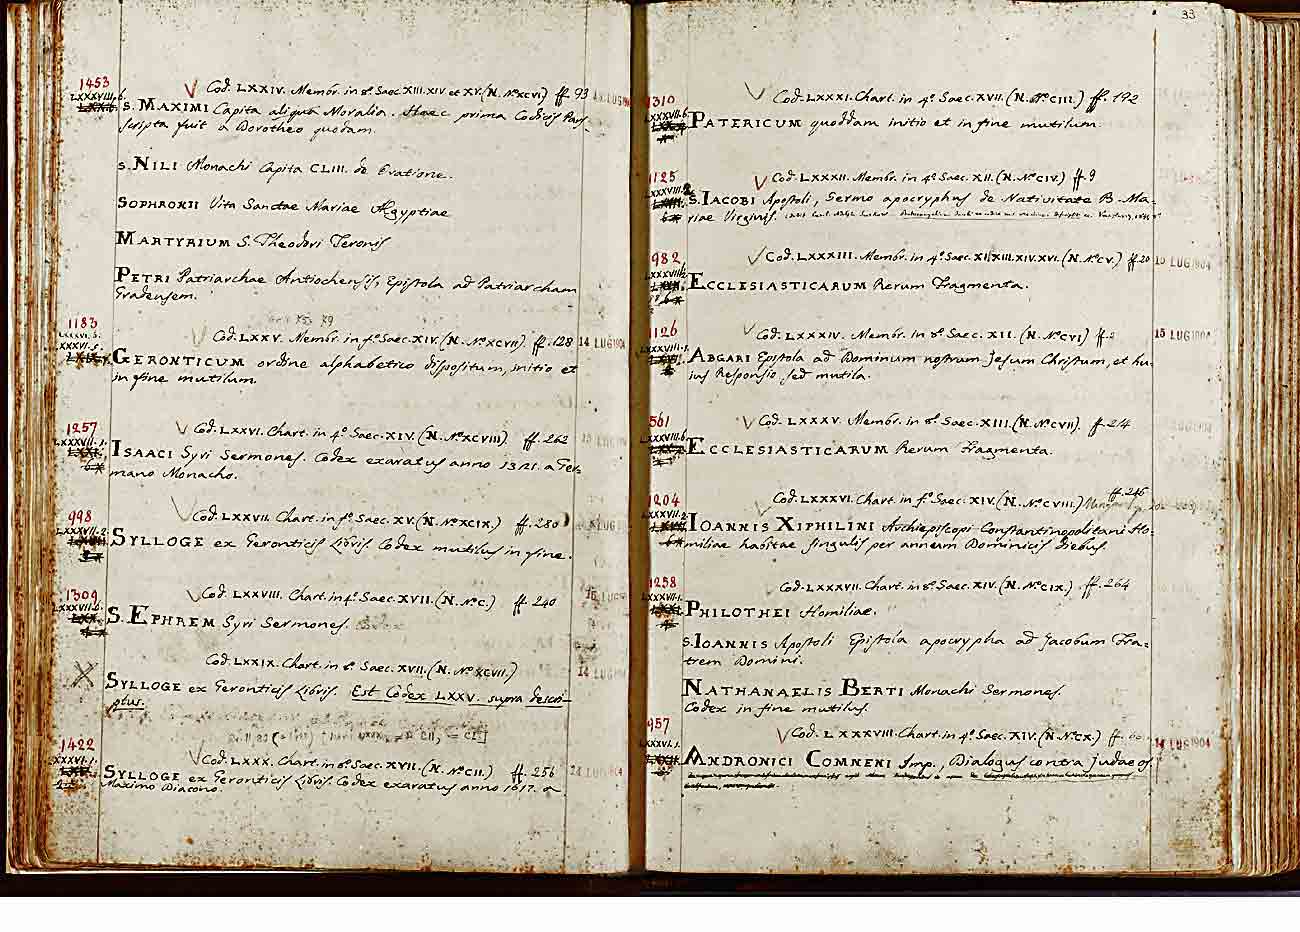 1453
Cod. LXXIV. Membr. in 8º. Saec. XIII. XIV et XV. (N. Nº. XCVI) ff. 93
S. MAXIMI Capita aliqua Moralia. Haec prima Codicis Pars
scripta fuit a Dorotheo quodam.
S. NILI Monachi Capita CLIII. de Oratione.
SOPHRONII Vita Sanctae Mariae Ægyptiae
MARTYRIUM S. Theodori Teronis
PETRI Patriarchae Antiochensis, Epistola ad Patriarcham
Gradensem.
1183
Cod. LXXV. Membr. in fº. Saec. XIV. (N. Nº. XCVII) ff. 128 14 LUG 1904
GERONTICUM ordine alphabetico dispositum, initio et
in fine mutilum.
1257
Cod. LXXVI. Chart. in 4º. Saec. XIV. (N. Nº. XCVIII) ff. 262
LXXXVII. 1.
ISAACI Syri Sermones. Codex exaratus anno 1321. a Ger-
mano Monacho.
998
Cod. LXXVII. Chart. in fº. Saec. XV. (N. Nº. XCIX.) ff. 280
LXXXVII. 2.
SYLLOGE ex Geronticis Libris. Codex mutilus in fine.
1309
Cod. LXXVIII. Chart. in 4º. Saec. XVII. (N. Nº. C.) ff. 240
S. EPHREM Syri Sermones.
Cod. LXXIX. Chart. in 8º. Saec. XVII. (N. Nº. XCVII.)
14 LUG 1904
SYLLOGE ex Geronticis Libris. Est Codex LXXV. supra descri-
ptus.
1422
Cod. LXXX. Chart. in 8º. Saec. XVII. (N. Nº. CII.) ff. 256
LXXXVI. 1.
SYLLOGE ex Geronticis Libris. Codex exaratus anno 1617. a
Maximo Diacono.
33
1310
Cod. LXXXI. Chart. in 4º. Saec. XVII. (N. Nº. CIII.) ff. 192
PATERICUM quoddam initio et in fine mutilum.
1125
Cod. LXXXII. Membr. in 4º. Saec. XII. (N. Nº. CIV.) ff. 9
S. IACOBI Apostoli, Sermo apocryphus de Nativitate B. Ma-
riae Virginis.
982
Cod. LXXXIII. Membr. in 4º. Saec. XI. XIII. XIV. XVI. (N. Nº. CV.) ff. 20 15 LUG 1904
ECCLESIASTICARUM Rerum Fragmenta.
1126
Cod. LXXXIV. Membr. in 8º. Saec. XII. (N. Nº. CVI) ff. 15 LUG 1904
ABGARI Epistola ad Dominum nostrum Jesum Christum, et hu-
ius Responsio sed mutila.
561
Cod. LXXXV. Membr. in 8º. Saec. XIII. (N. Nº. CVII). ff. 214
ECCLESIASTICARUM Rerum Fragmenta.
1204
ff. 246
Cod. LXXXVI. Chart. in fº. Saec. XIV. (N. Nº. CVIII.)
IOANNIS XIPHILINI Archiepiscopi Constantinopolitani Ho-
miliae habitae singulis per annum Dominicis diebus.
1258
Cod. LXXXVII. Chart. in 8º. Saec. XIV. (N. Nº. CIX.) ff. 264
PHILOTHEI Homiliae.
S. IOANNIS Apostoli Epistola apocrypha ad Jacobum Fra-
trem Domini.
NATHANAELIS BERTI Monachi Sermones.
Codex in fine mutilus.
957
Cod. LXXXVIII. Chart. in 4º. Saec. XIV. (N. Nº. CX.) ff.
LXXXVI. 1.
ANDRONICI COMNENI Imp., Dialogus contra Judaeos